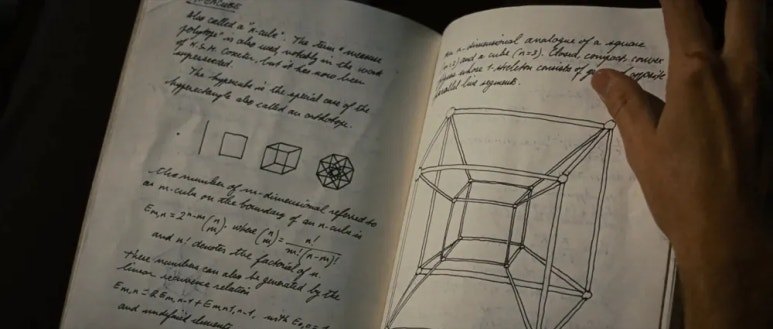 also called a "n-cube". The term "measure
polytope" is also used, notably in the work
of H.S.M. Coxeter, but it has now been
superseded.
The hypercube is the special case of the
hyperrectangle also called an orthotope.
the number of m-dimensional referred to
an m-cube on the boundary of an n-cube is
Em,n = 2^n-m (n m), where (n m) = n! / m!(n-m)!
and n! denotes the factorial of n
these numbers can also be generated by the
linear recurrence relation
Em,n = 2Em,n-1 + Em-1,n-1, with E0,0 =
and undefined elements
an n-dimensional analogue of a square
and a cube (n=3). Closed, compact, convex
whose 1-skeleton consists of opposite
parallel line segments.